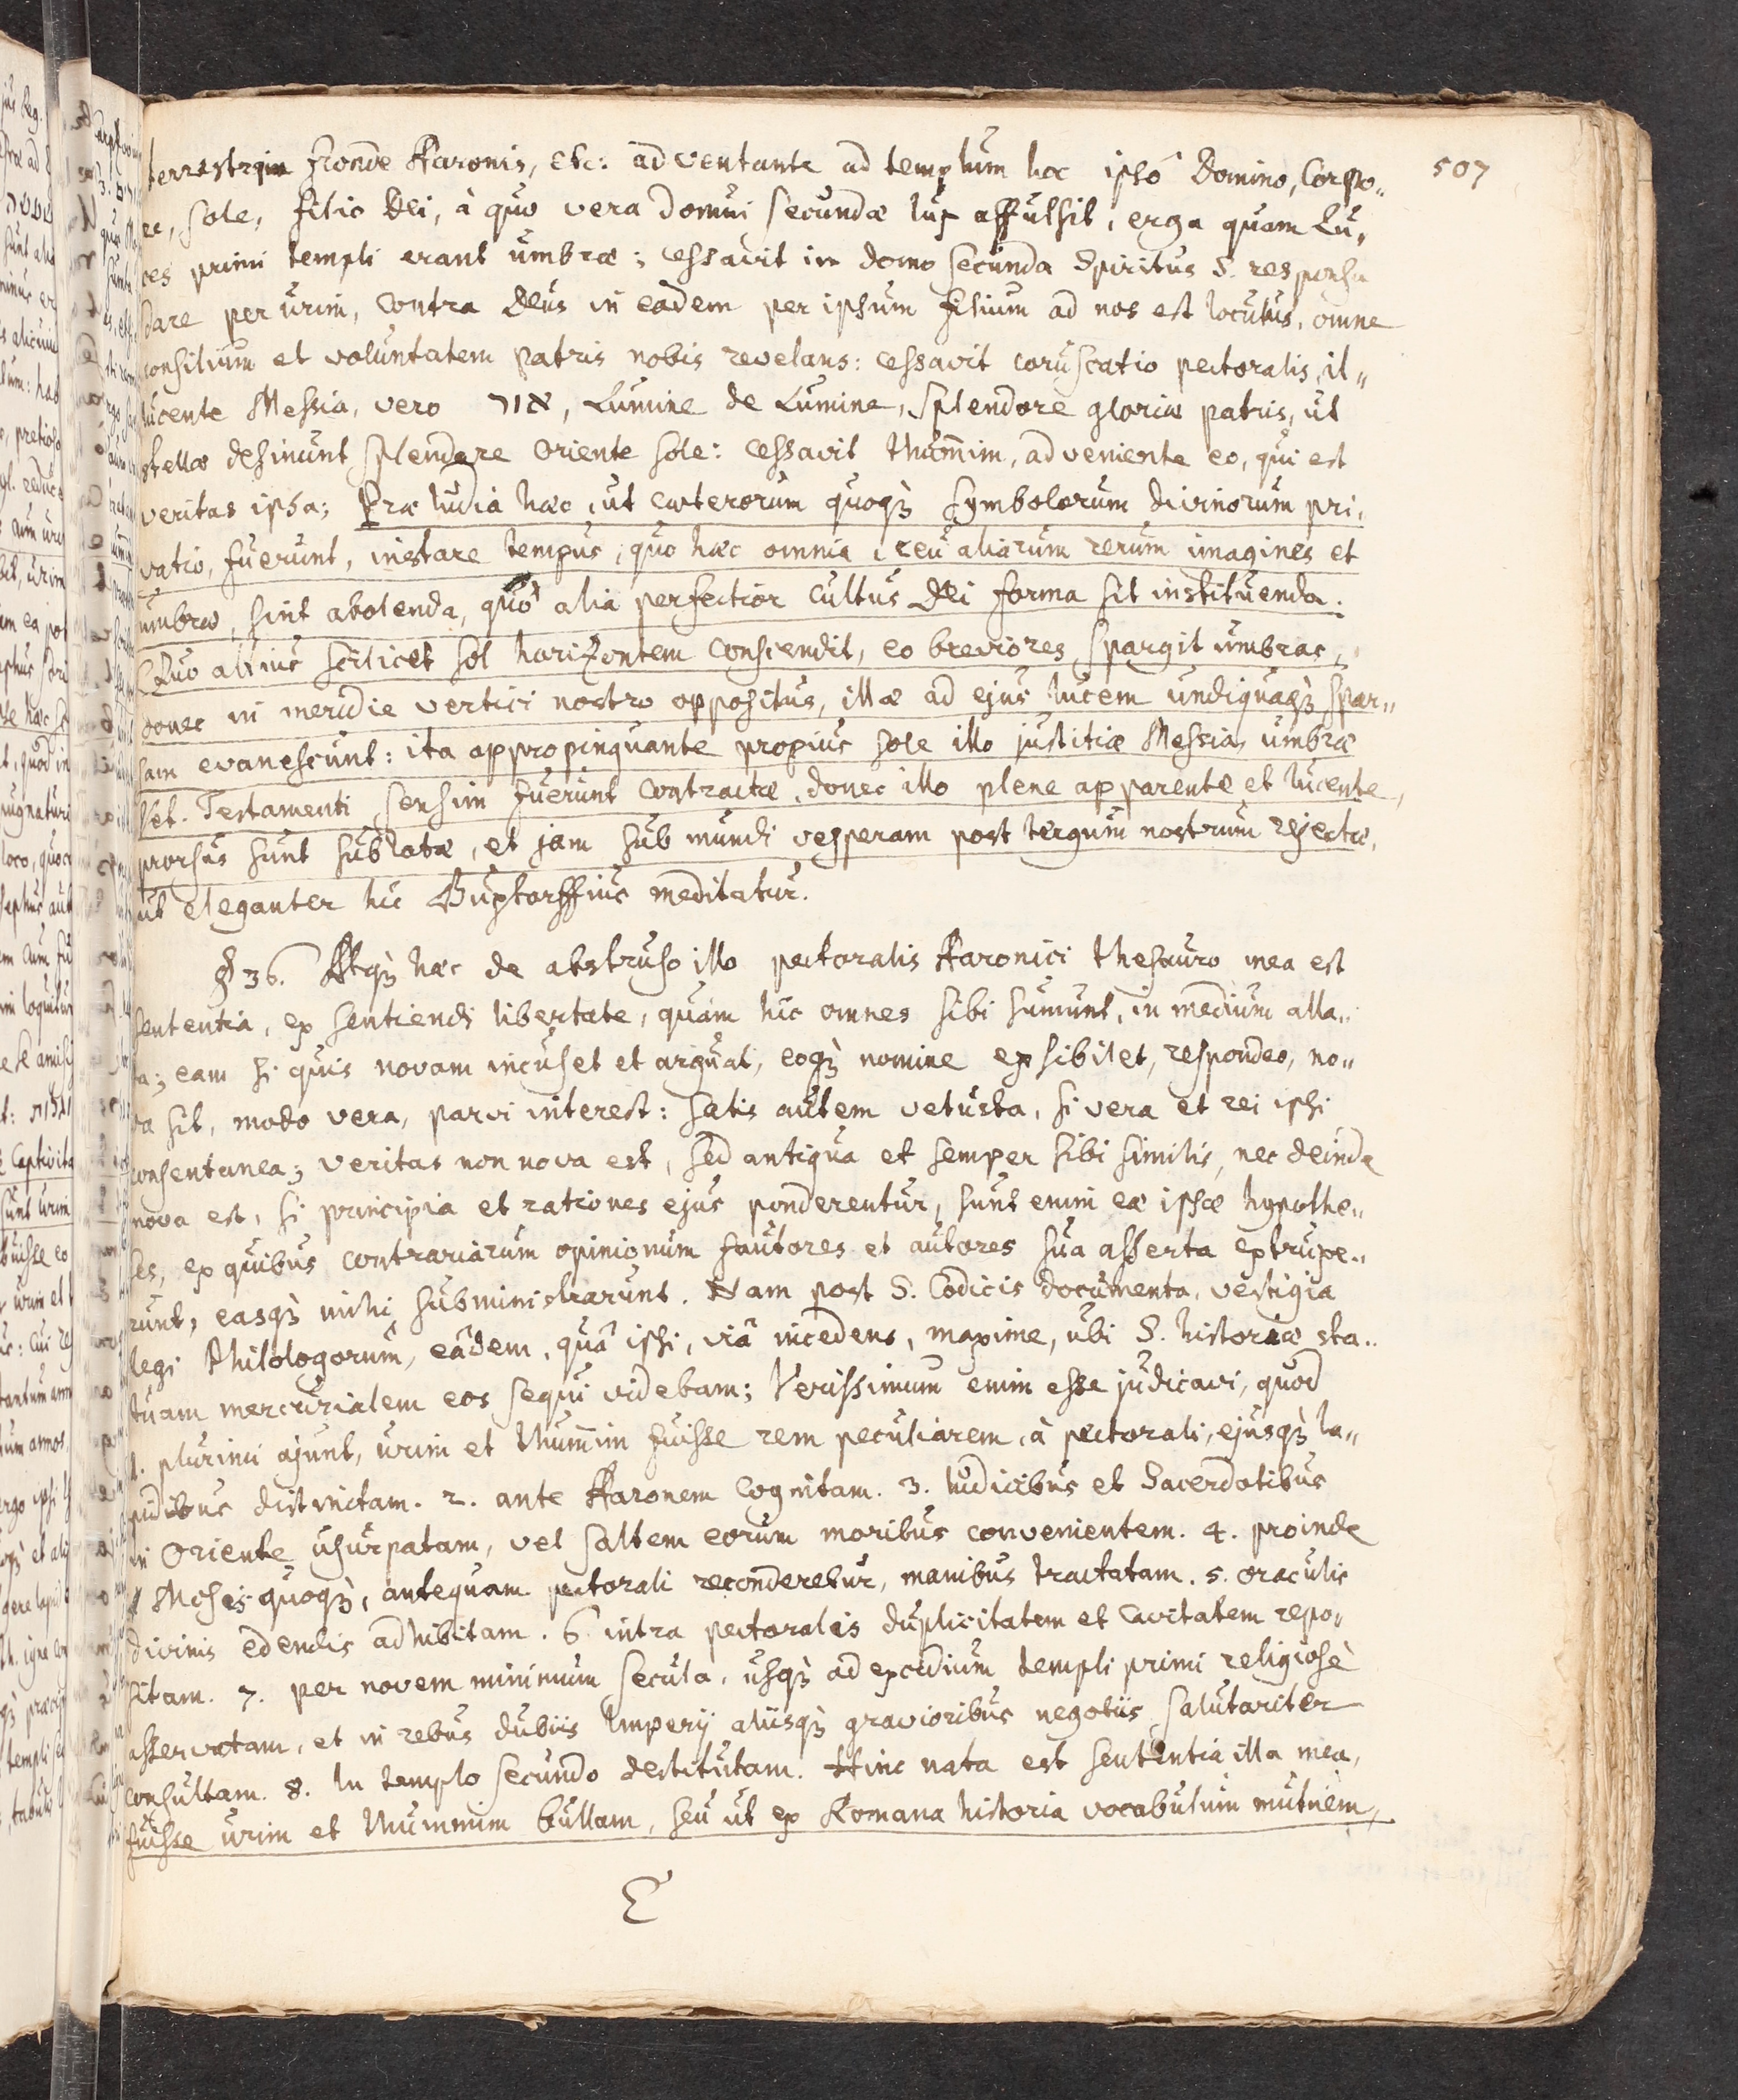 507
terrestria fronde Aaronis, etc: adventante ad templum hoc ipsô Domino, Corpo„
re, sole, filio Dei, à quo vera domui secundæ lux affulsit, erga quam Lu„
ces primi templi erant umbræ; cessavit in domo secunda Spiritus S. responsa
dare per urim, contra Deus in eadem per ipsum filium ad nos est locutus, omne
consilium et voluntatem patris nobis revelans: cessavit coruscatio pectoralis, il„
lucente Messia, vero אור, Lumine de Lumine, splendore gloriæ patris, ut
stellæ desinunt splendere oriente sole: cessavit thummim, adveniente eo, qui est
veritas ipsa; Præludia hæc, ut cæterorum quoqꝫ symbolorum divinorum pri„
vatio, fuerunt, instare tempus, quo hæc omnia, ceu aliarum rerum imagines et
umbræ, sint abolenda, quô alia perfectior cultus Dei forma sit instituenda.
Quo altius scilicet sol horizontem conscendit, eo breviores spargit umbras,
donec in meridie vertici nostro oppositus, illæ ad ejus lucem undiquaqꝫ spar„
sam evanescunt: ita appropinquante propius sole illo justitiæ Messia, umbræ
Vet. Testamenti sensim fuerunt contractæ, donec illo plene apparente et lucente,
prorsus sunt sublatæ, et jam sub mundi vesperam post tergum nostrum rejectæ,
ut eleganter hic Buxtorffius meditatur.
§ 36. Atqꝫ hæc de abstruso illo pectoralis Aaronici thesauro mea est
sententia, ex sentiendi libertate, quam hic omnes sibi sumunt, in medium alla„
ta; eam si quis novam incuset et arguat, eoqꝫ nomine exsibilet, respondeo, no„
va sit, modo vera, parvi interest: satis autem vetusta, si vera et rei ipsi
consentanea; veritas non nova est, sed antiqua et semper sibi similis, nec deinde
nova est, si principia et rationes ejus ponderentur, sunt enim eæ ipsæ hypothe„
ses, ex quibus contrariarum opinionum fautores et autores sua asserta extruxe„
runt, easqꝫ mihi subministrarunt. Nam post S. Codicis documenta, vestigia
legi Philologorum, eâdem, quâ ipsi, viâ incedens, maxime, ubi S. historiæ sta„
tuam mercurialem eos sequi videbam; Verissimum enim esse judicavi, quod
1. plurimi ajunt, urim et thummim fuisse rem peculiarem, à pectorali, ejusqꝫ la„
pidibus distinctam. 2. ante Aaronem cognitam. 3. Judicibus et Sacerdotibus
in Oriente usurpatam, vel saltem eorum moribus convenientem. 4. proinde
à Mose quoqꝫ, antequam pectorali reconderetur, manibus tractatam. 5. oraculis
divinis edendis adhibitam. 6. intra pectoralis duplicitatem et cavitatem repo„
sitam. 7. per novem minimum secula, usqꝫ ad excidium templi primi religiosè
asservatam, et in rebus dubiis Imperij aliisqꝫ gravioribus negotiis salutariter
consultam. 8. In templo secundo destitutam. Hinc nata est sententia illa mea,
fuisse urim et thummim bullam, seu ut ex Romana historia vocabulum mutuem,